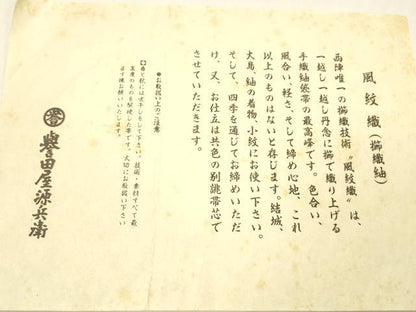 風紋織(櫛織紬)
西陣唯一の櫛織技術〝風紋織〟は、
一越し一越し丹念に櫛で織り上げる
手織紬低帯の最高峰です。色合い、
風合い、軽さ、そして締め心地、これ
以上のものはないと存じます。結城、
大島、紬の着物、小紋にお使い下さい。
そして、四季を通じてお締めいただ
け、又、お仕立は共色の別誂帯芯で
させていただきます。
●お取扱い上のご注意
春と秋には虫干しをして下さい。技術・素材すべて最
高度のものを駆使した帯です。大切にお取扱い下さい
ます様お願いいたします。
誉田屋源兵衛